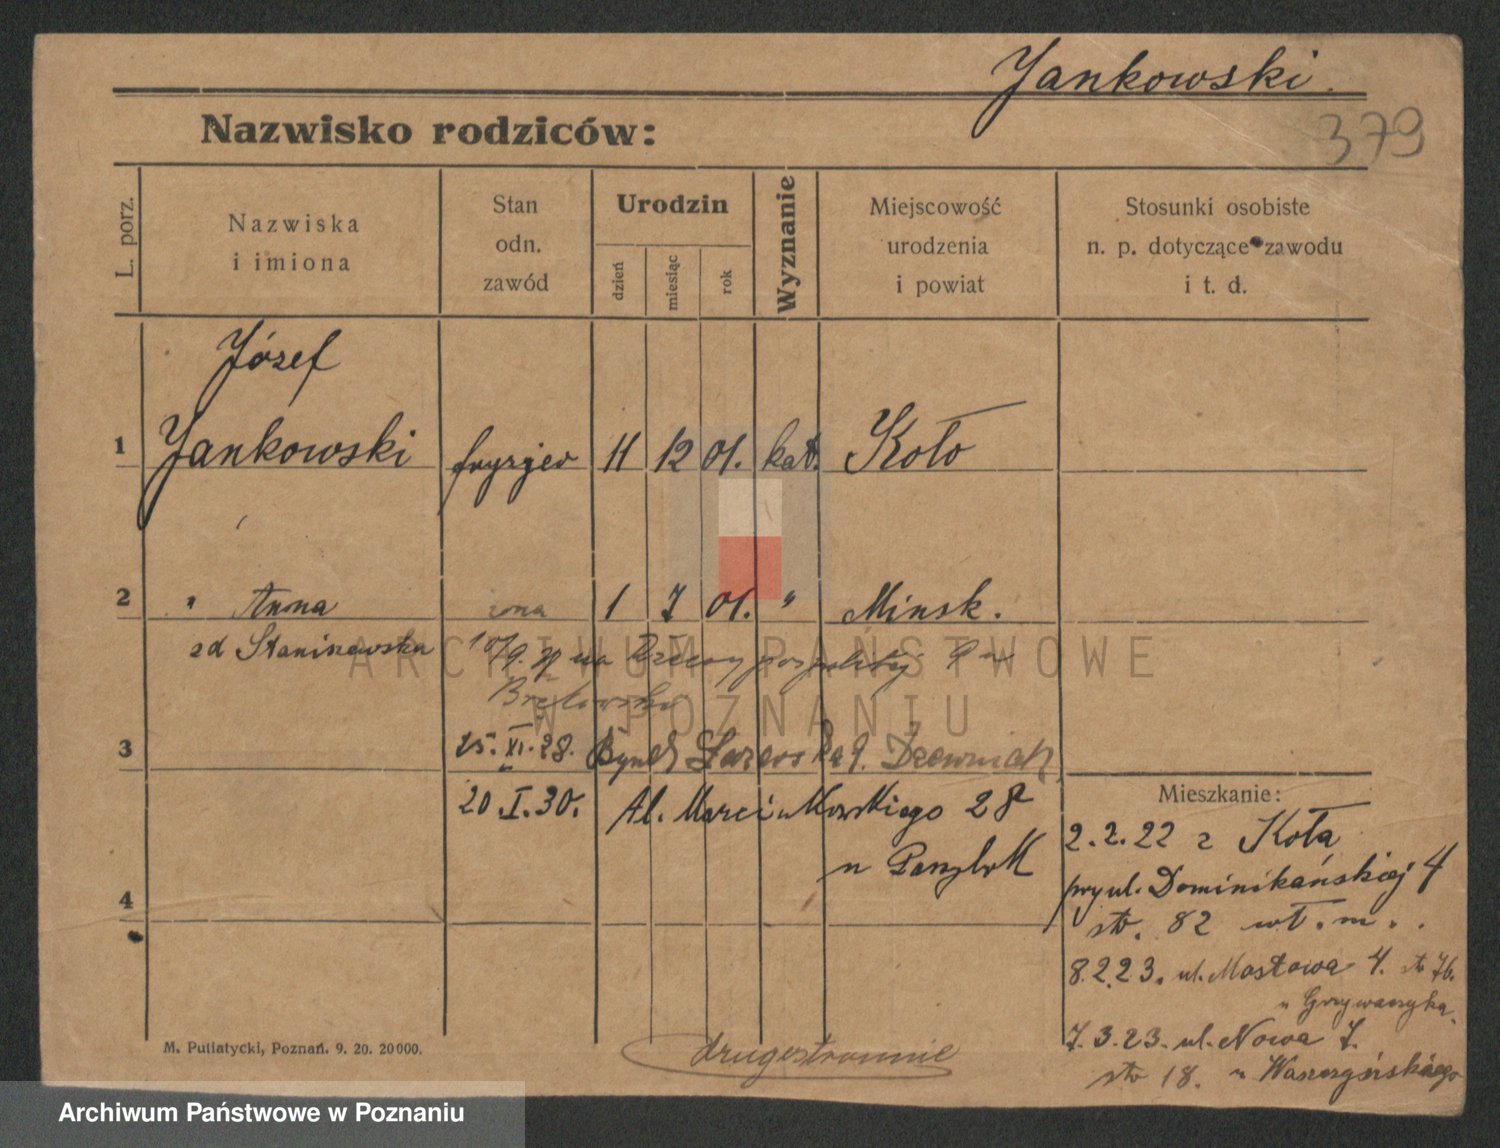 Jankowski.
379
Nazwisko rodziców:
L. porz.
Nazwiska
i imiona
Stan
odn.
zawód
Urodzin
dzień
miesiąc
rok
Wyznanie
Miejscowość
urodzenia
i powiat
Stosunki osobiste
n. p. dotyczące zawodu
i t. d.
Józef
1 Jankowski fryzjer 11 12 01. kat. Koło
2 " Anna żona 1 7 01. " Minsk.
zd Staniszewska
3 25. XI. 28. Rynek
20. I. 30. Al. Marcinkowskiego 28
4
Mieszkanie:
2.2.22 z Koła
przy ul. Dominikańskiej 4
str. 82 wł. m.
8.2.23. ul. Mostowa 4. str 76.
u Grzywaczyka.
7.3.23. ul. Nowa 7.
str 18. u
drugostronnie
M. Putiatycki, Poznań. 9. 20. 20000.
ARCHIWUM PAŃSTWOWE
W POZNANIU
Archiwum Państwowe w Poznaniu